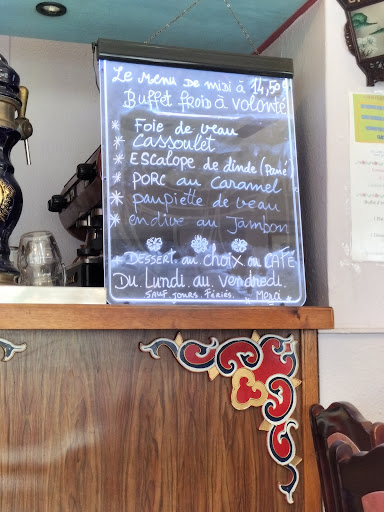 Le Menu De midi à 14,50€
Buffet froid à volonté
* Foie de veau
* Cassoulet
* Escalope de dinde (Pané)
* Porc au Caramel
* paupiette de veau
* endive au Jambon
+ Dessert au choix ou CAFÉ
Du Lundi au vendredi
Sauf Jours Fériés. Merci